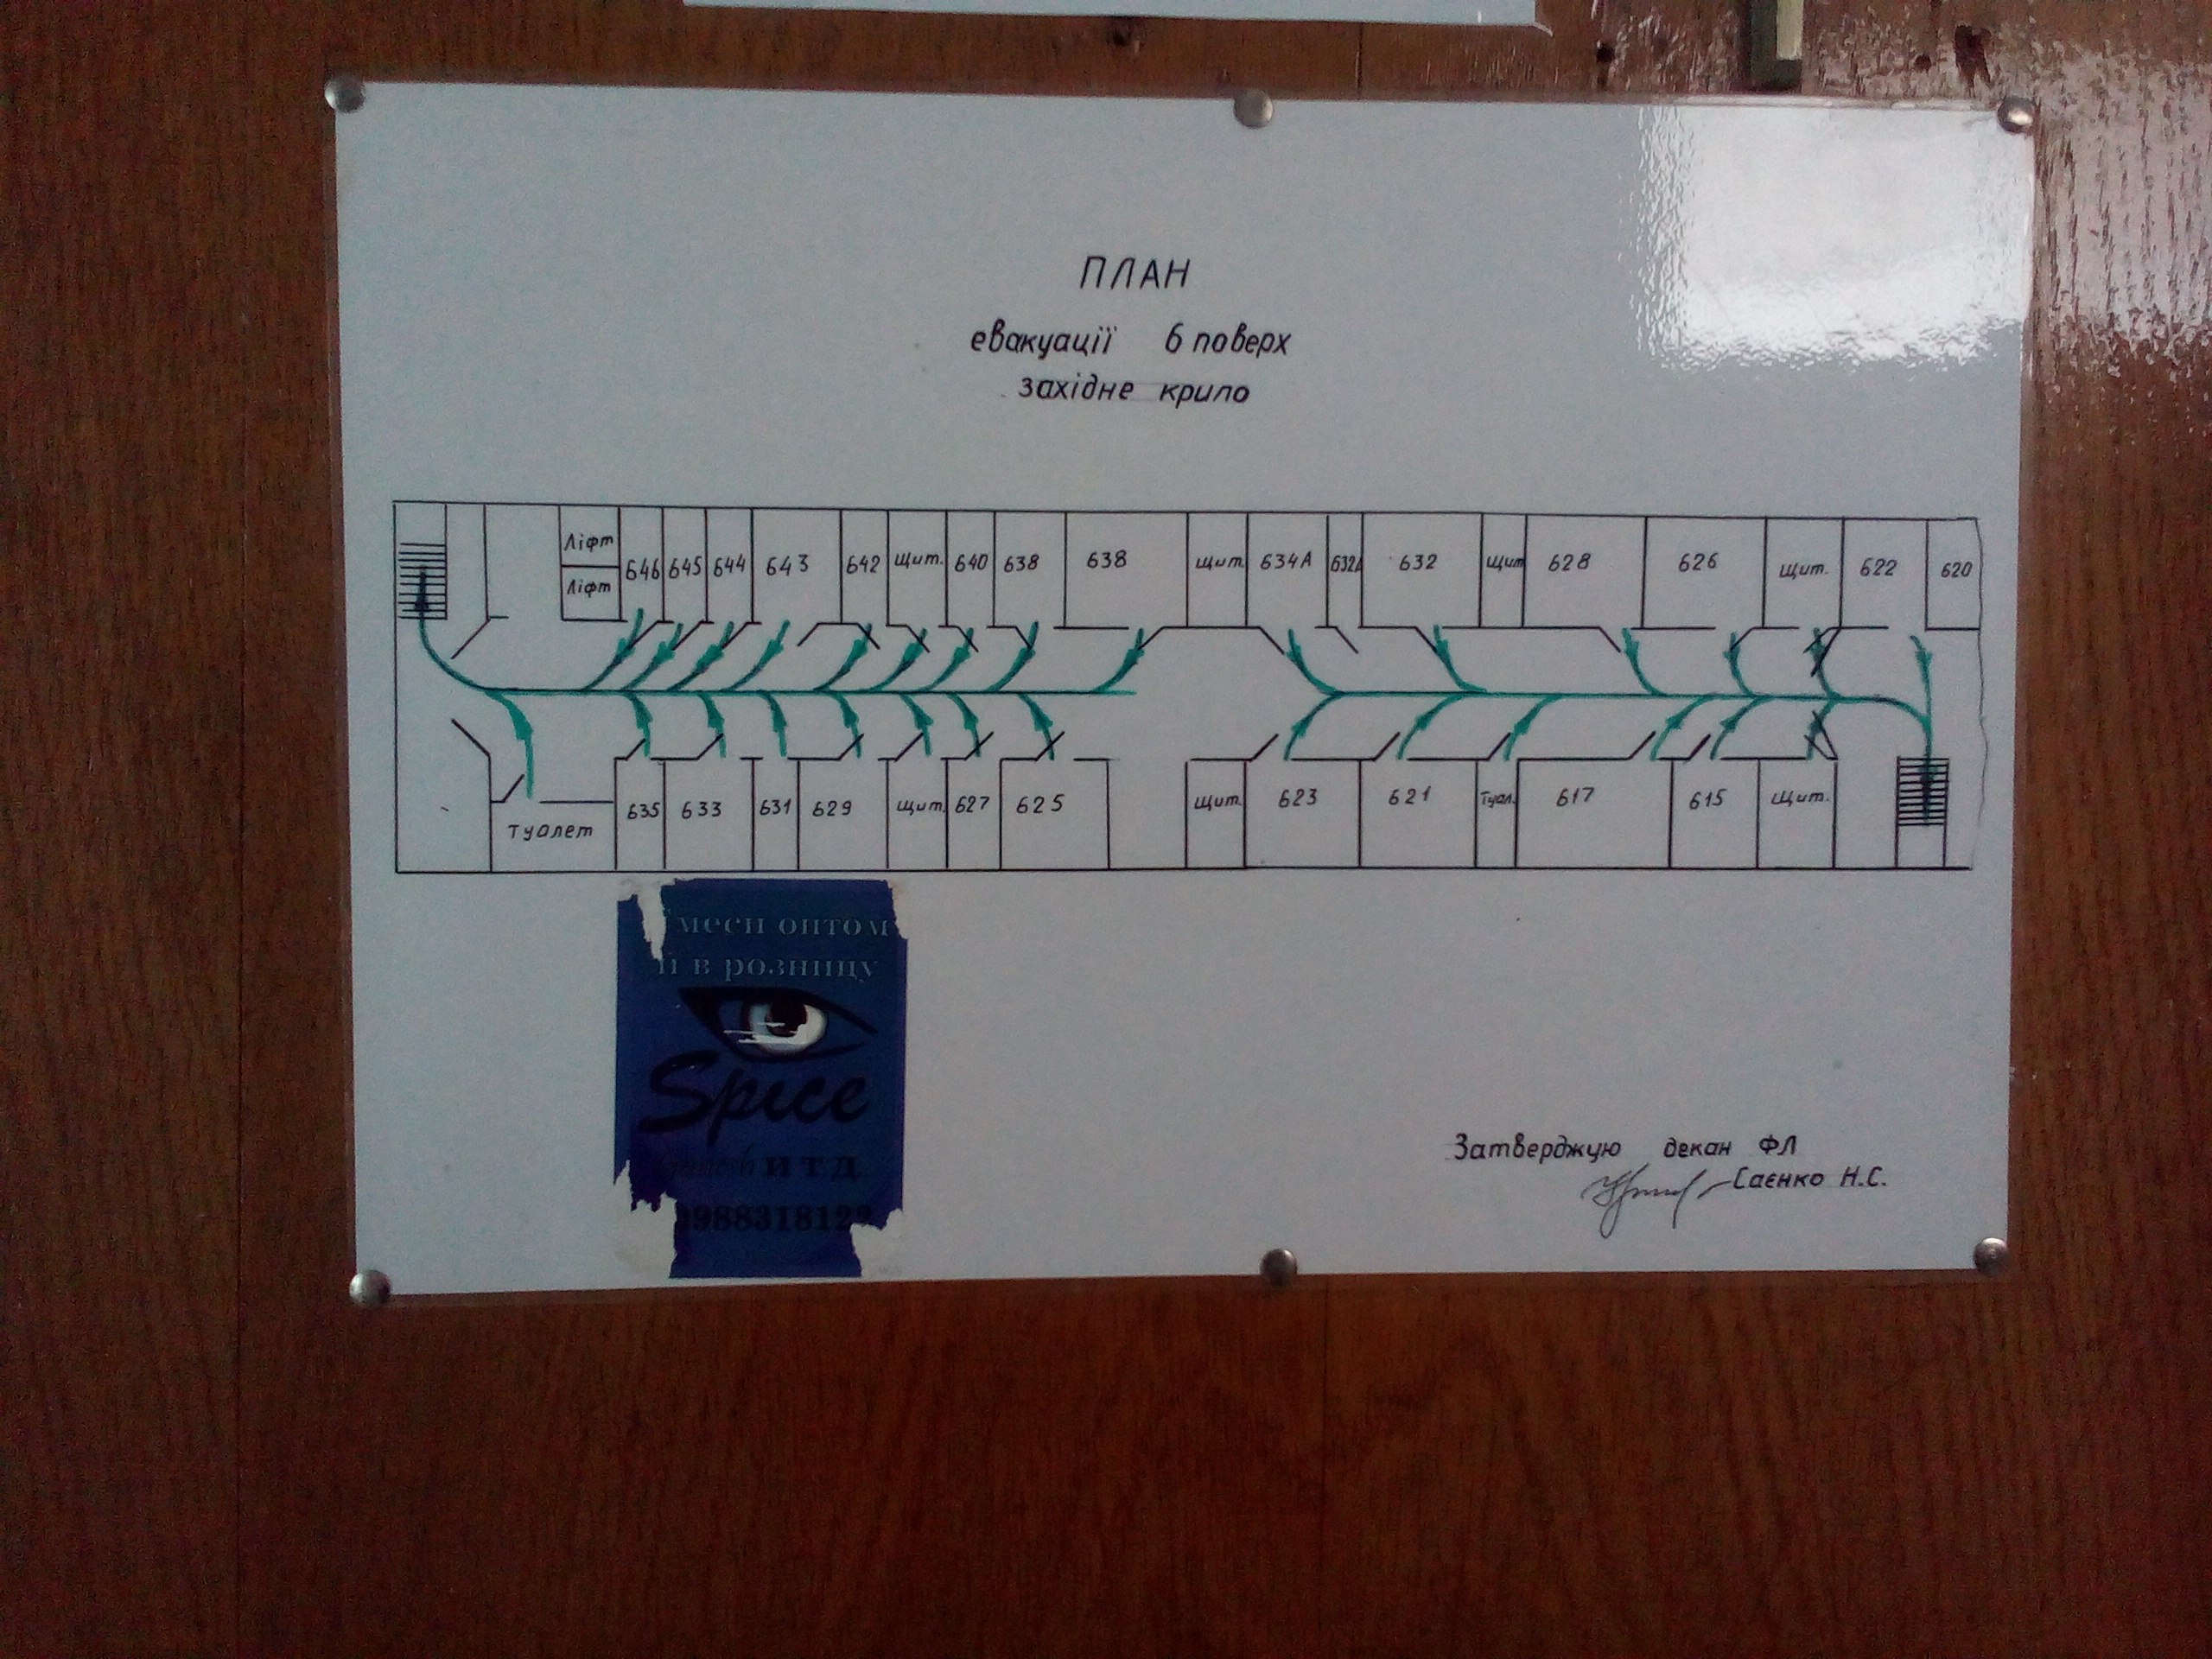 ПЛАН
евакуації 6 поверх
західне крило
Ліфт
Ліфт
646 645 644 643 642 Щит. 640 638 638 Щит. 634А 632А 632 Щит 628 626 Щит. 622 620
Туалет 635 633 631 629 Щит. 627 625 Щит. 623 621 Туал. 617 615 Щит.
меси оптом
и в розницу
Spice
и т.д
988318122
Затверджую декан ФЛ
Саєнко Н.С.